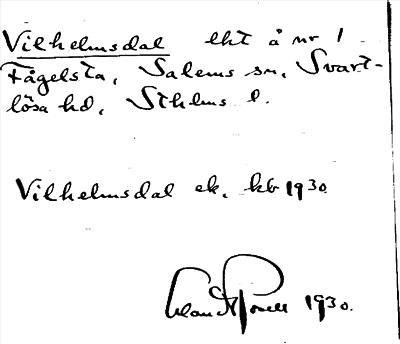 Vilhelmsdal lht å nr 1
Fågelsta, Salems sn, Svart-
lösa hd, Sthlms l.
Vilhelmsdal ek. kb 1930
1930.